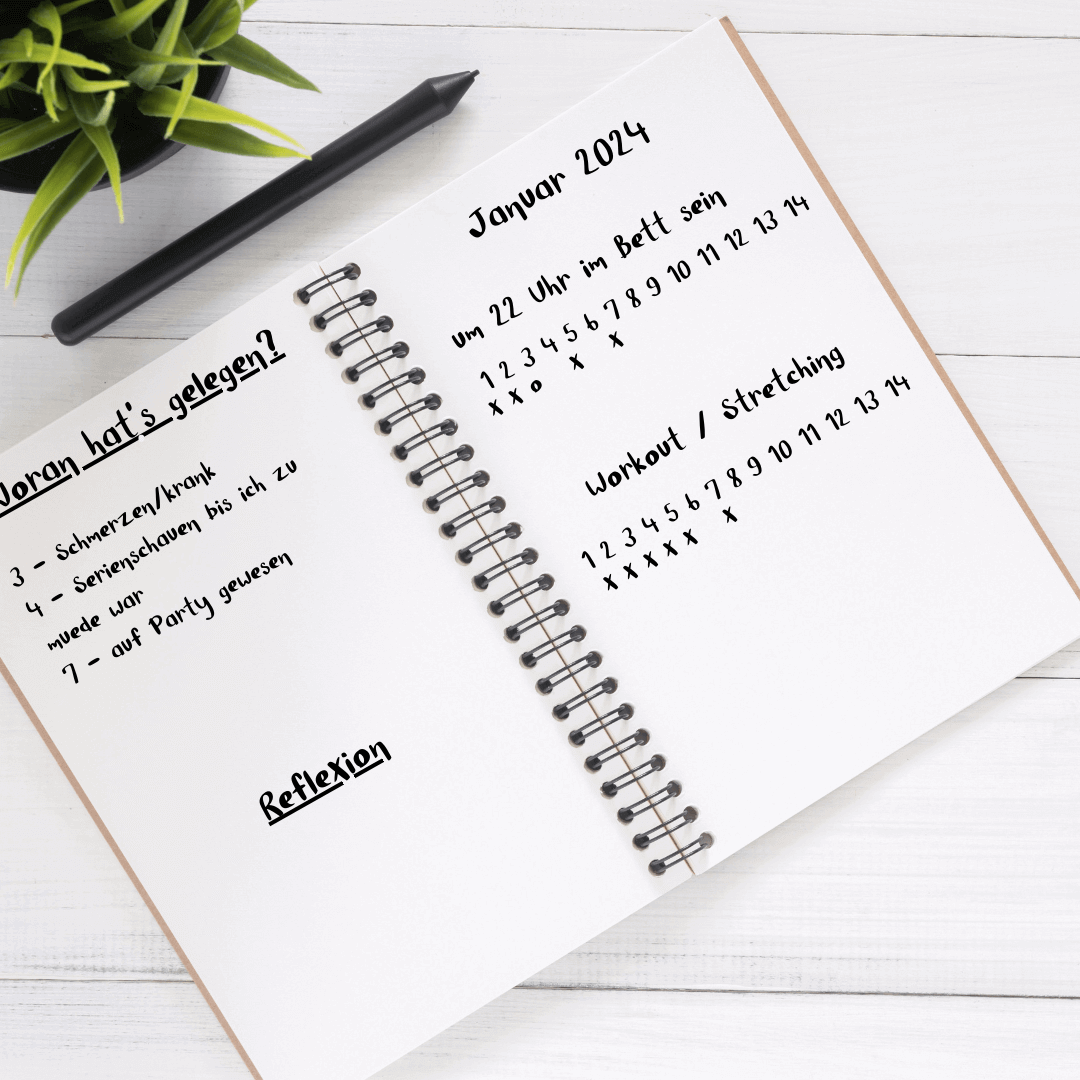 Woran hat's gelegen?
3 - Schmerzen/krank
4 - Serienschauen bis ich zu
muede war
7 - auf Party gewesen
Reflexion
Januar 2024
um 22 Uhr im Bett sein
1 2 3 4 5 6 7 8 9 10 11 12 13 14
x x o x x
Workout / Stretching
1 2 3 4 5 6 7 8 9 10 11 12 13 14
x x x x x x